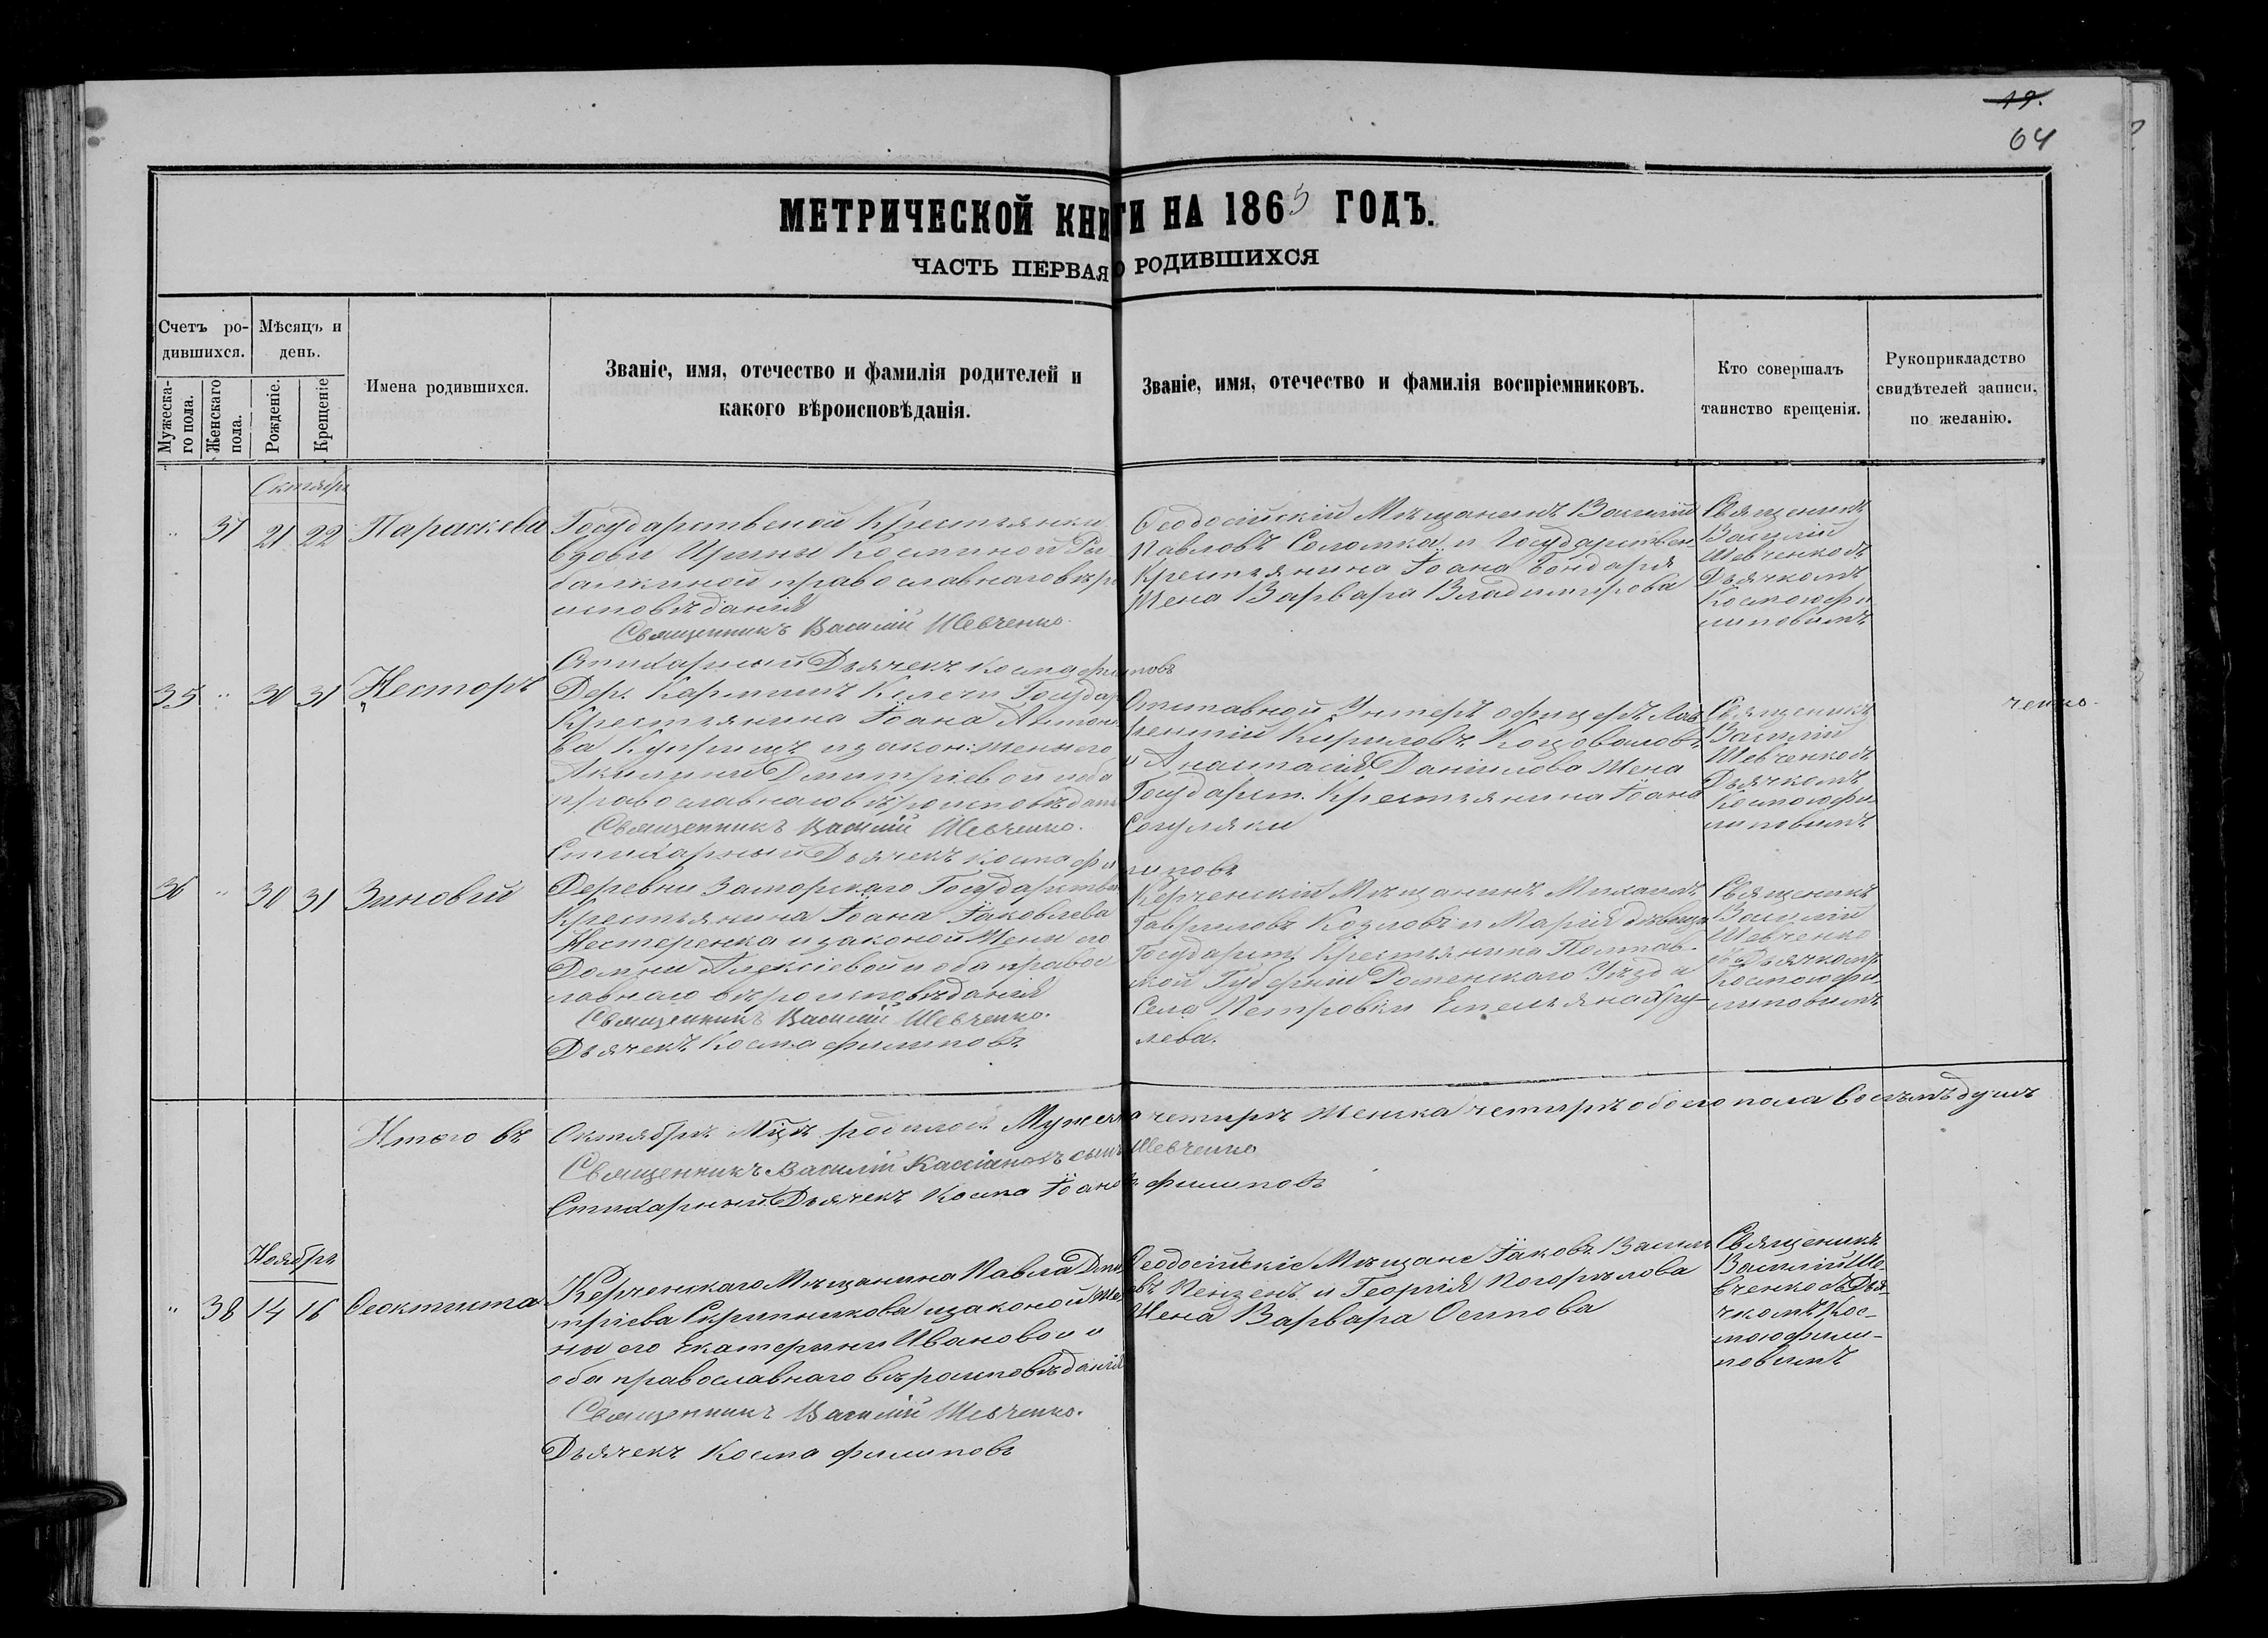 19.
64
МЕТРИЧЕСКОЙ КНИГИ НА 1865 ГОДЪ.
ЧАСТЬ ПЕРВАЯ О РОДИВШИХСЯ
Счетъ родившихся.
Мужескаго пола.
Женскаго пола.
Мѣсяцъ и день.
Рожденіе.
Крещеніе
Имена родившихся.
Званіе, имя, отечество и фамилія родителей и
какого вѣроисповѣданія.
Званіе, имя, отечество и фамилія воспріемниковъ.
Кто совершалъ
таинство крещенія.
Рукоприкладство
свидѣтелей записи,
по желанію.
Октябрь
" 37 21 22 Параскева
Государственой Крестьянки
Вдовы Ирины Косминой Ры
балкиной православнаго вѣро
исповѣданія
Священникъ Василій Шевченко.
Стихарный Дьячекъ Косма Филиповъ
Ѳеодосійскій Мѣщанинъ Василій
Павловъ Соломка и Государствен.
Крестьянина Іоана Бондаря
Жена Варвара Владимирова
Священикъ
Василій
Шевченко съ
Дьячкомъ
Космою Фи
липовымъ
35 " 30 31 Несторъ
Дер. Кармышъ Келечи Государ
Крестьянина Іоана Антоно
ва Куприцъ и закон: жены его
Акилины Дмитріевой и оба
православнаго вѣроисповѣдан
Священникъ Василій Шевченко.
Стихарный Дьячекъ Косма Филиповъ
Отставной Унтеръ офицеръ Лав
рентій Кириловъ Коцоваловъ
и Анастасія Данилова Жена
Государст. Крестьянина Іоана
Согуляки
Священикъ
Василій
Шевченко съ
Дьячкомъ
Космою Фи
липовымъ
ченко.
36 " 30 31 Зиновій
Деревни Заморскаго Государствен
Крестьянина Іоана Іаковлева
Нестеренка и законой Жены его
Домны Алексіевой и оба правос
лавнаго вѣроисповѣданія
Священникъ Василій Шевченко.
Дьячекъ Косма Филиповъ
Керченскій Мѣщанинъ Михаилъ
Гавриловъ Козловъ и Марія дѣвица
Государст. Крестьянина Полтав-
ской Губерніи Роменскаго Уѣзда
Села Петровки Емельяна Хру-
лева.
Священикъ
Василій
Шевченко
съ Дьячкомъ
Космою Фи
липовымъ
Итого въ Октябрѣ М-цѣ родилось Мужеска четыре Женска четыре обоего пола восемъ душъ
Священникъ Василій Кассіановъ сынъ Шевченко
Стихарный Дьячекъ Косма Іоановъ Филиповъ
Ноябрь
" 38 14 16 Ѳеоктиста
Керченскаго Мѣщанина Павла Дми
тріева Скрипникова и законой Же
ны его Екатерины Ивановой и
оба православнаго вѣроисповѣданія
Священникъ Василій Шевченко.
Дьячекъ Косма Филиповъ
Ѳеодосійскіе Мѣщане Іаковъ Василь
евъ Пензенъ и Георгія Погорѣлова
Жена Варвара Осипова
Священикъ
Василій Ше-
вченко съ Дья-
чкомъ Кос-
мою Фили-
повымъ